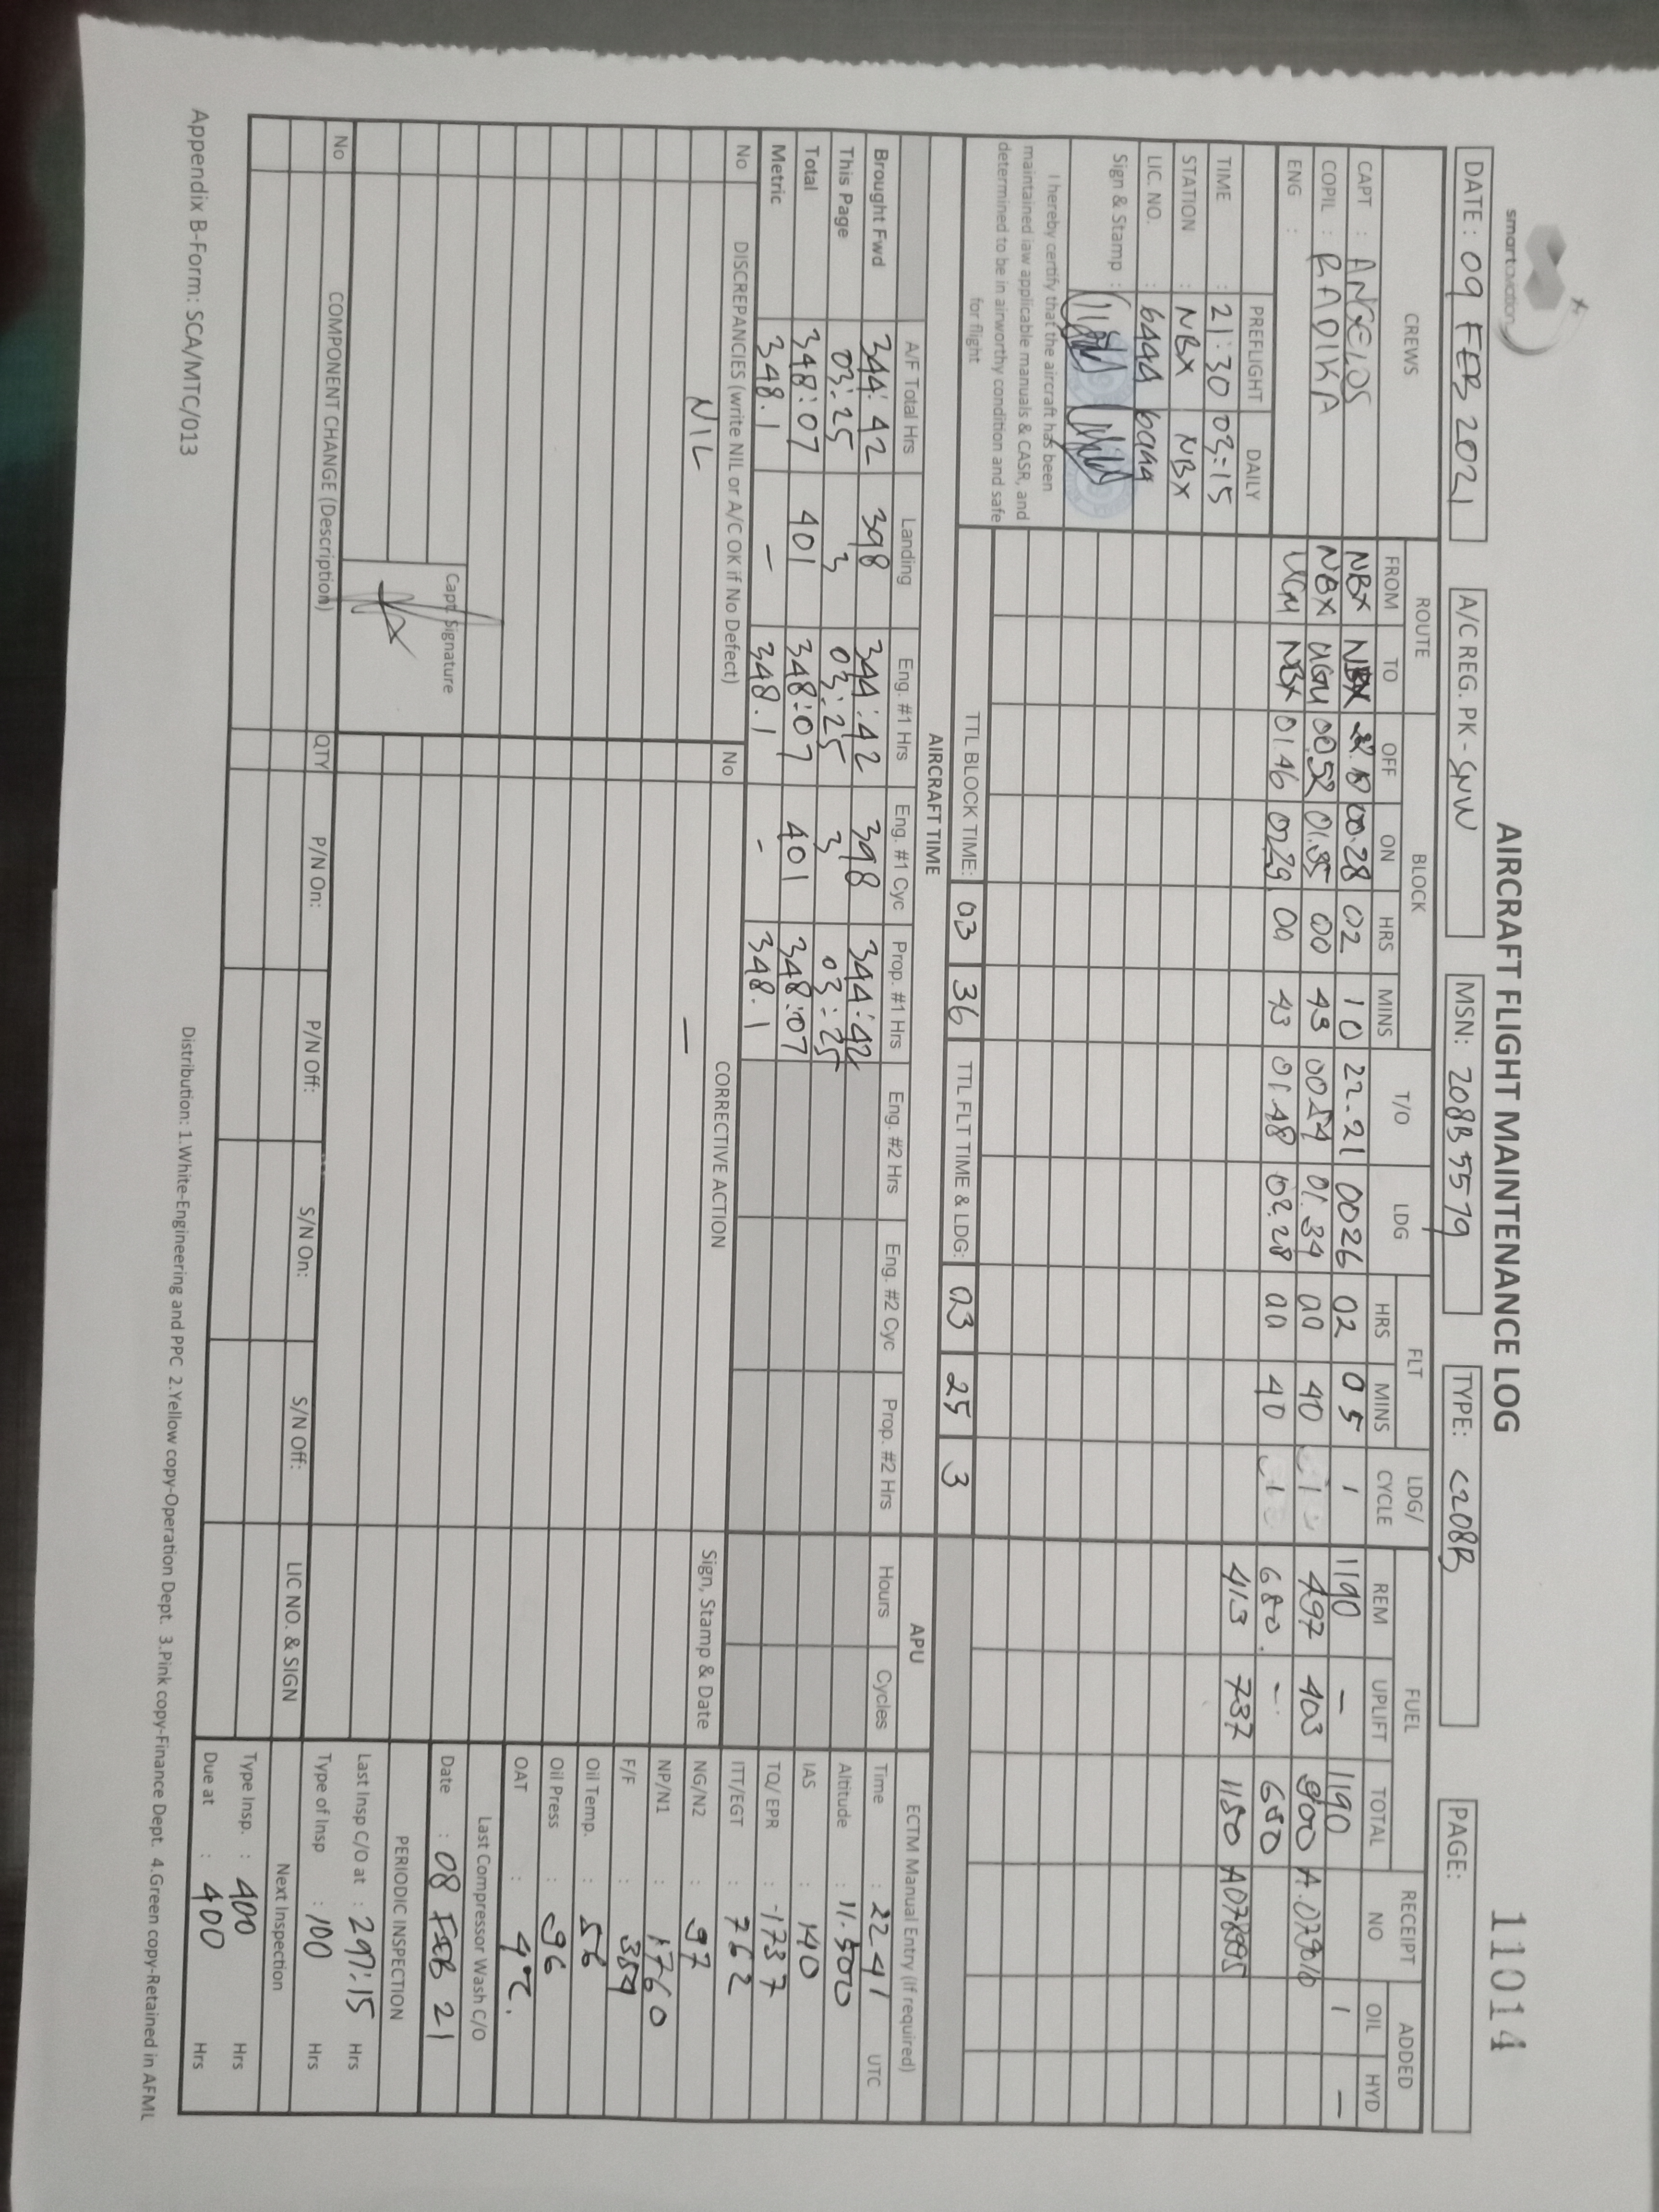 smartaviation
AIRCRAFT FLIGHT MAINTENANCE LOG
11014
DATE : 09 FEB 2021
A/C REG. PK - SNW
MSN: 208B5579
TYPE: C208B
PAGE:
CREWS ROUTE BLOCK T/O LDG FLT LDG/ CYCLE FUEL RECEIPT NO ADDED
FROM TO OFF ON HRS MINS HRS MINS REM UPLIFT TOTAL OIL HYD
CAPT : ANGELOS NBX NBX 00.28 02 10 22.21 0026 02 05 1 1190 - 1190 1 -
COPIL : RADIKA NBX UGU 00.52 01.35 00 43 00.54 01.34 00 40 1 497 403 900
ENG : UGU NBX 01.46 02.29 00 43 01.48 02.28 00 40 1 680. - 680
413 737 1150 A078995
PREFLIGHT DAILY
TIME : 21:30 03:15
STATION : NBX NBX
LIC. NO. :
Sign & Stamp :
I hereby certify that the aircraft has been
maintained iaw applicable manuals & CASR, and
determined to be in airworthy condition and safe
for flight
TTL BLOCK TIME: 03 36 TTL FLT TIME & LDG: 03 25 3
AIRCRAFT TIME APU ECTM Manual Entry (If required)
A/F Total Hrs Landing Eng. #1 Hrs Eng. #1 Cyc Prop. #1 Hrs Eng. #2 Hrs Eng. #2 Cyc Prop. #2 Hrs Hours Cycles Time : 2241 UTC
Brought Fwd 344:42 398 344:42 398 344:42 Altitude : 11.500
This Page 03:25 3 03:25 3 03:25 IAS : 140
Total 348:07 401 348:07 401 348:07 TQ/ EPR : 1737
Metric 348.1 - 348.1 - 348.1 ITT/EGT : 762
No DISCREPANCIES (write NIL or A/C OK if No Defect) No CORRECTIVE ACTION Sign, Stamp & Date NG/N2 : 97
NIL - NP/N1 : 1760
F/F : 354
Oil Temp. : 56
Oil Press : 96
OAT : 4°C.
Last Compressor Wash C/O
Capt. Signature
Date : 08 FEB 21
PERIODIC INSPECTION
Last Insp C/O at : 297:15 Hrs
No COMPONENT CHANGE (Description) QTY P/N On: P/N Off: S/N On: S/N Off: LIC NO. & SIGN Type of Insp : 100 Hrs
Next Inspection
Type Insp. : 400 Hrs
Due at : 400 Hrs
Appendix B-Form: SCA/MTC/013
Distribution: 1.White-Engineering and PPC 2.Yellow copy-Operation Dept. 3.Pink copy-Finance Dept. 4.Green copy-Retained in AFML